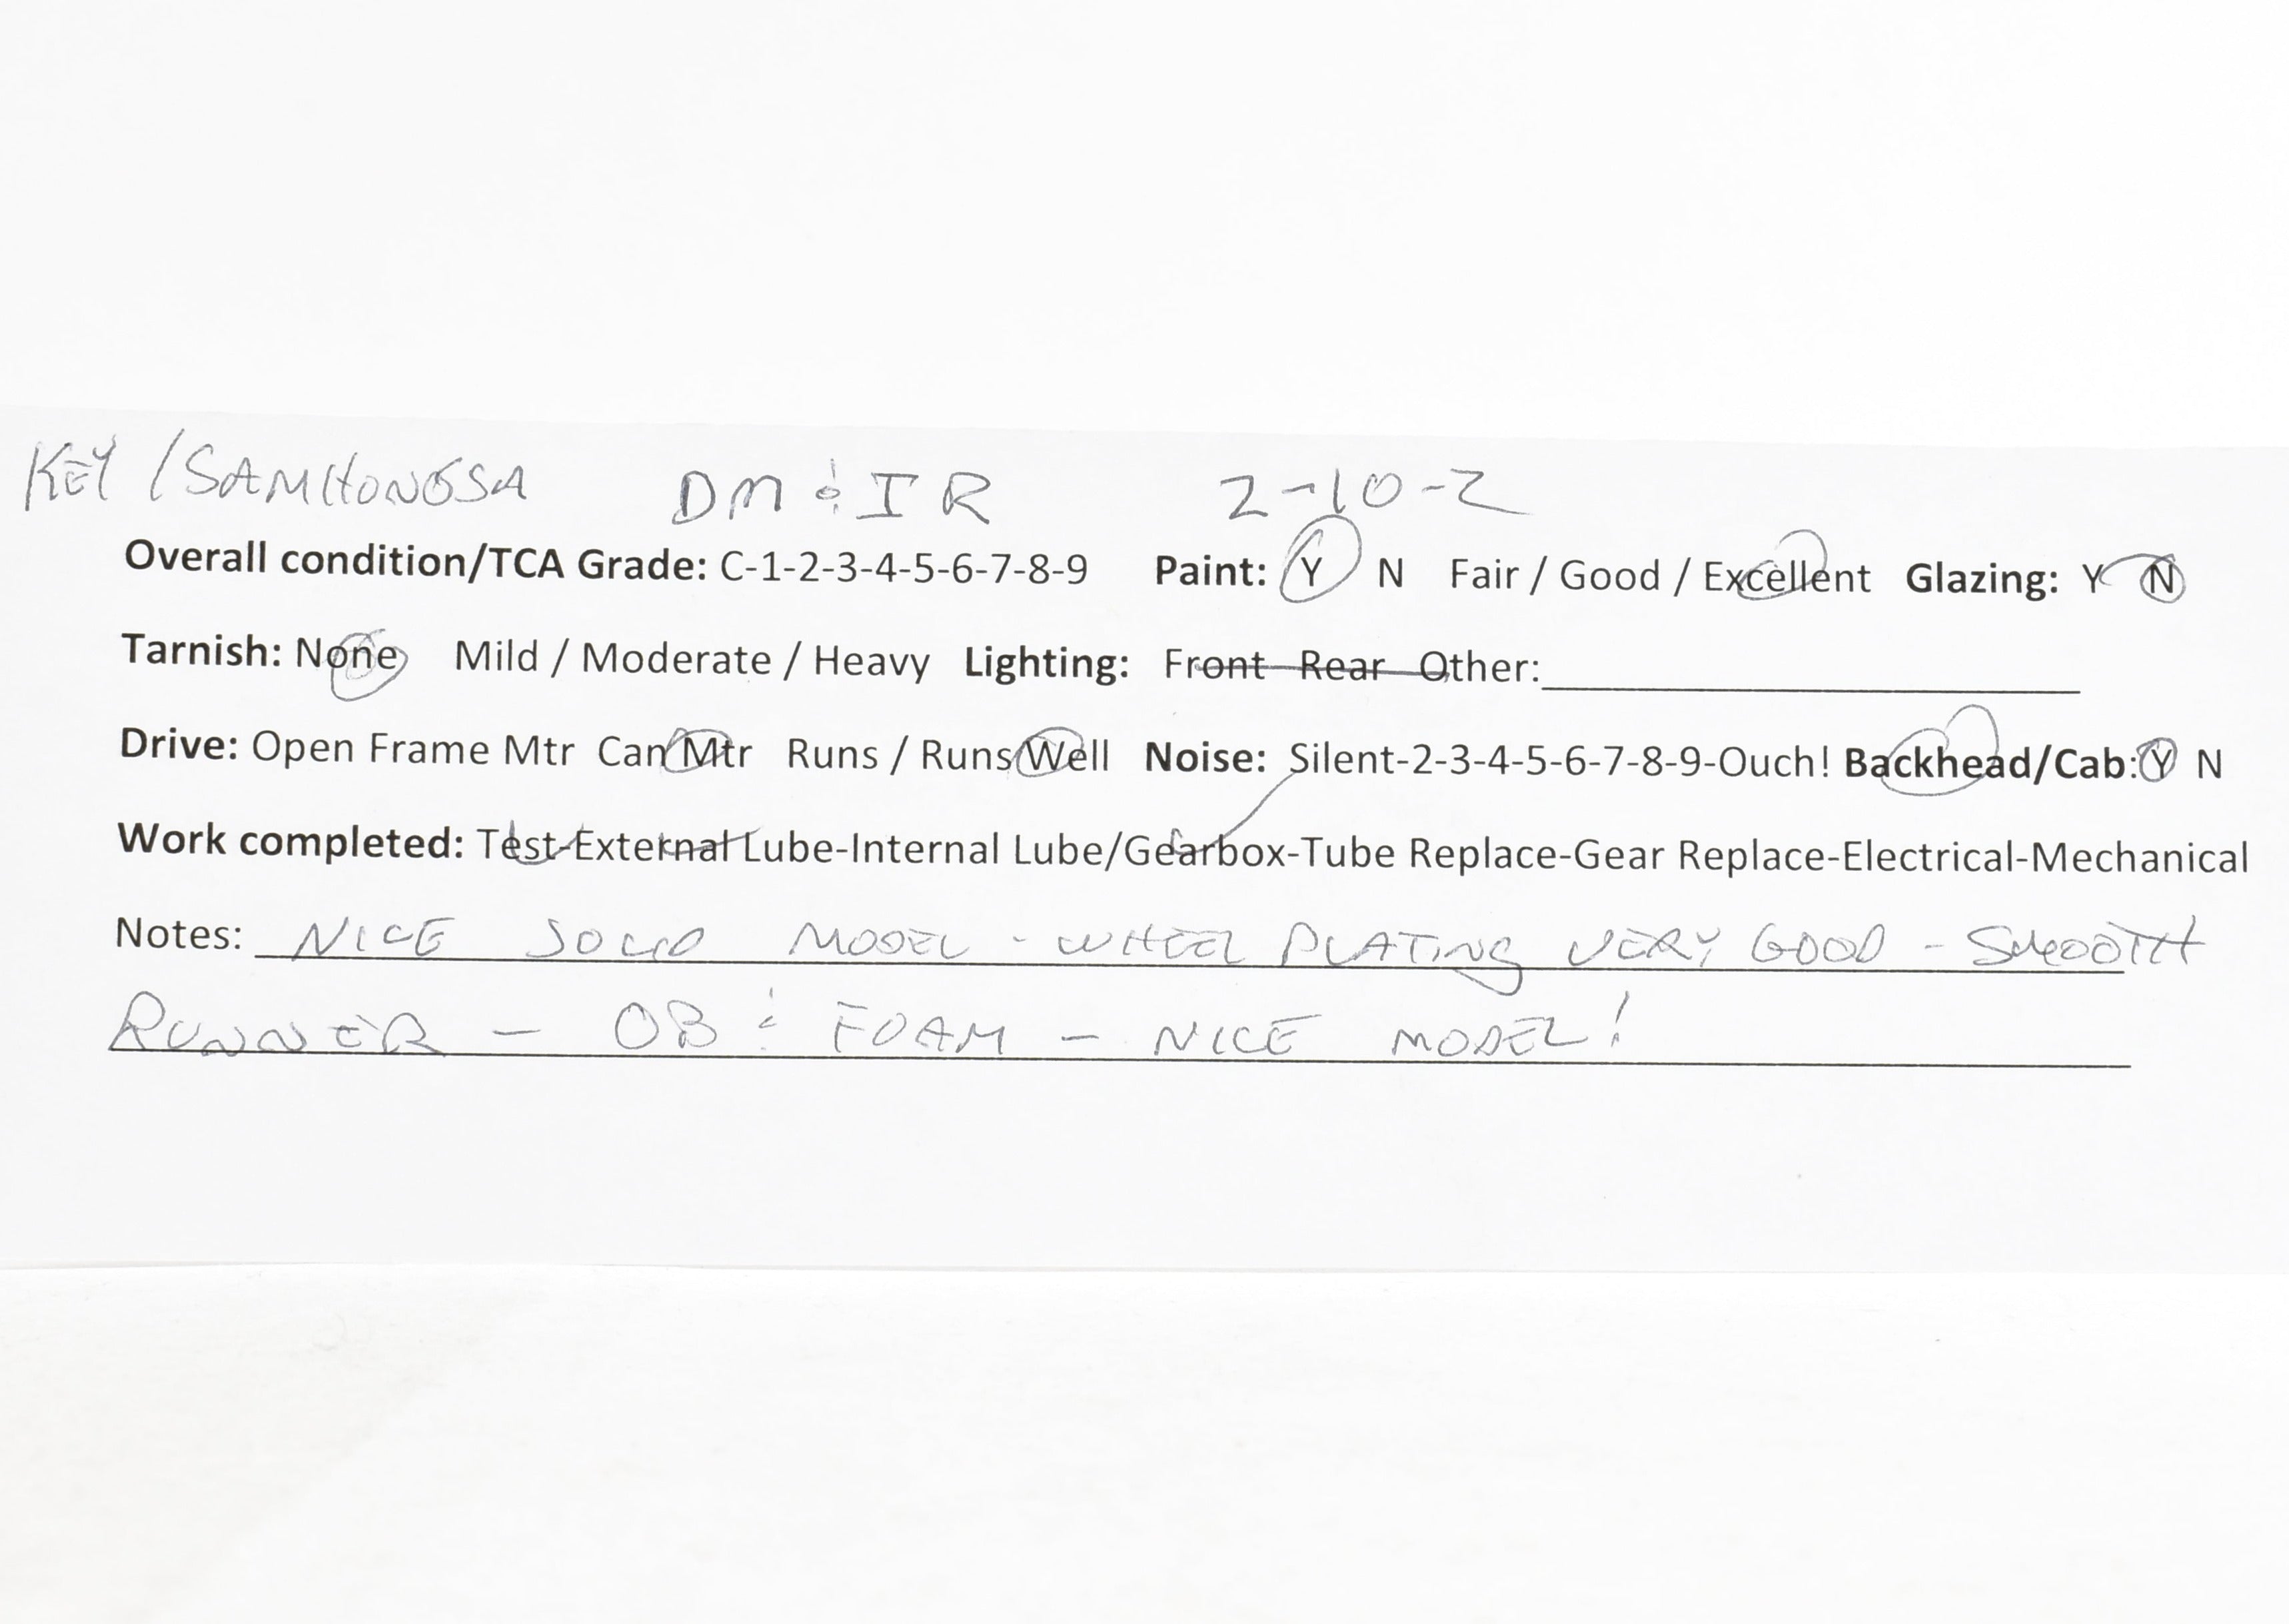 KEY / SAMHONGSA DM & IR 2-10-2
Overall condition/TCA Grade: C-1-2-3-4-5-6-7-8-9 Paint: Y N Fair / Good / Excellent Glazing: Y N
Tarnish: None Mild / Moderate / Heavy Lighting: Front Rear Other:
Drive: Open Frame Mtr Can Mtr Runs / Runs Well Noise: Silent-2-3-4-5-6-7-8-9-Ouch! Backhead/Cab: Y N
Work completed: Test-External Lube-Internal Lube/Gearbox-Tube Replace-Gear Replace-Electrical-Mechanical
Notes: NICE SOLID MODEL - WHEEL PLATING VERY GOOD - SMOOTH
RUNNER - OB & FOAM - NICE MODEL!